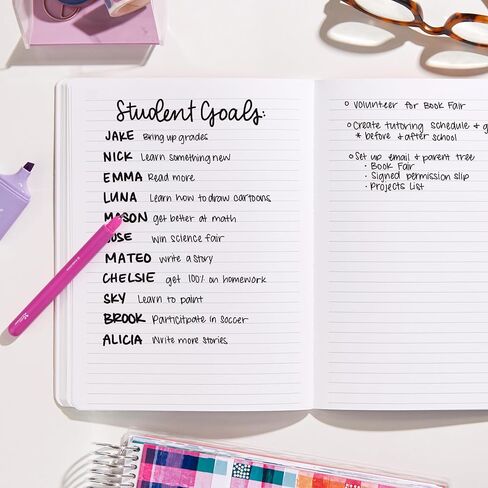 Student Goals:
JAKE Bring up grades
NICK Learn something new
EMMA Read more
LUNA Learn how to draw cartoons
MASON get better at math
JOSE Win science fair
MATEO write a story
CHELSIE get 100% on homework
SKY Learn to paint
BROOK Participate in soccer
ALICIA Write more stories
o Volunteer for Book Fair
o Create tutoring schedule + g
* before + after school
o Set up email + parent tree
• Book Fair
• Signed permission slip
• Projects List